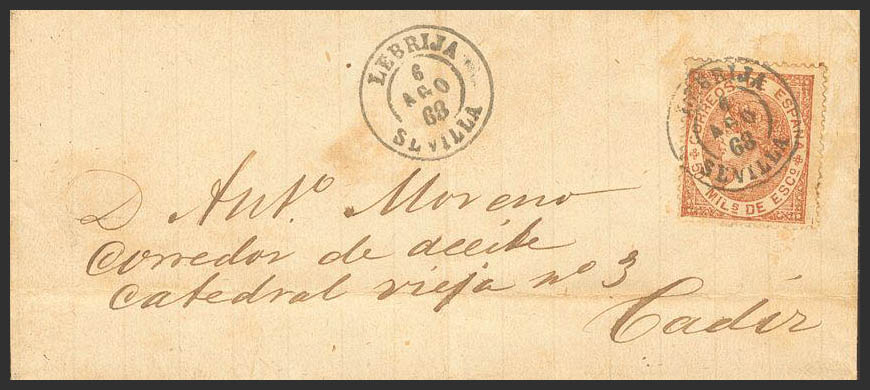 LEBRIJA
6
AGO
68
SEVILLA
LEBRIJA
6
AGO
68
SEVILLA
CORREOS DE ESPAÑA
50 MILS DE ESCO
D Antº Moreno
Corredor de aceite
Catedral vieja nº 3
Cadiz